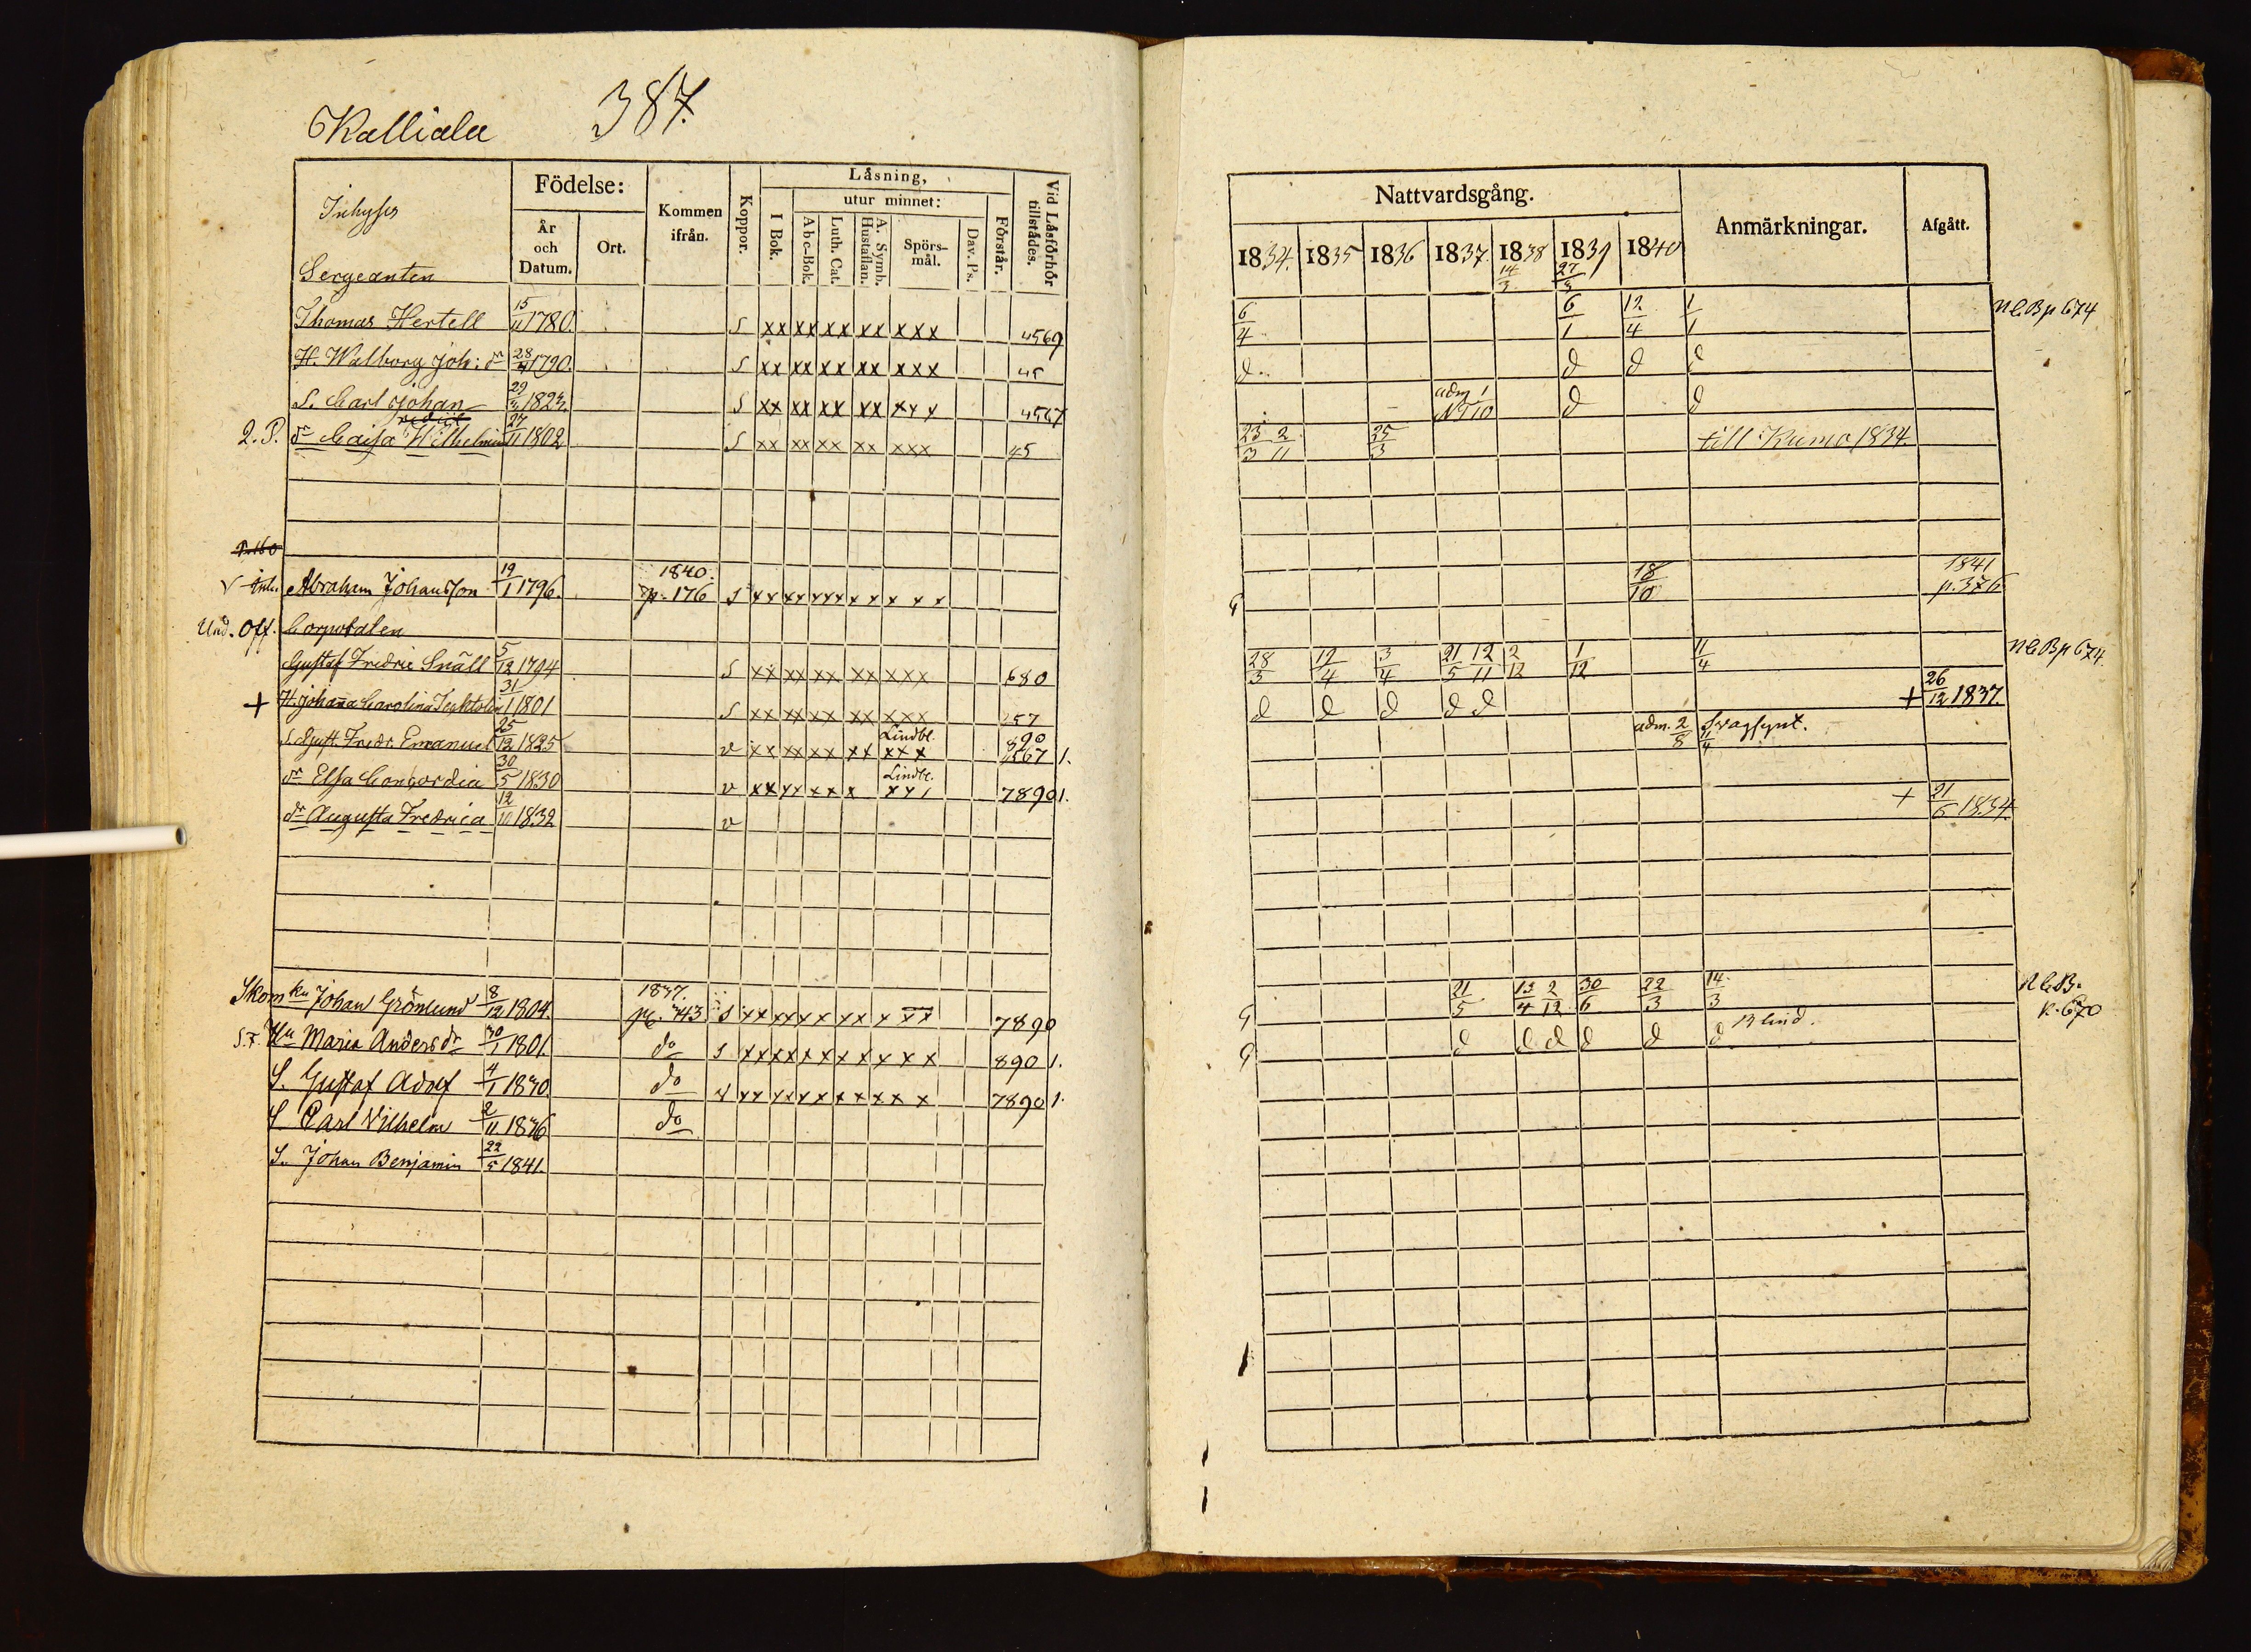 Kalliala 387.
Inhyses
Födelse:
År och Datum.
Ort.
Kommen ifrån.
Koppor.
Läsning,
I Bok.
utur minnet:
Abc-Bok.
Luth. Cat.
A. Symb. Hustaflan.
Spörsmål.
Dav. Ps.
Förstår.
Vid Läsförhör tillstädes.
Sergeanten
Thomas Hertell 15/11 1780. s xx xx xx xx xxx 4569
H. Walborg Joh: dr 28/4 1790. s xx xx xx xx xxx 45
S. Carl Johan 29/3 1823. s xx xx xx xx xxx 4567
2. P. dr Caisa Wilhelmina 27/11 1802 s xx xx xx xx xxx 45
Abraham Johansson 19/1 1796. 1840. p. 176 s xx xx xxx x x x x x
Und. Off. Corporalen
Gustaf Fredric Snäll 5/12 1794 s xx xx xx xx xxx 680
+ H. Johana Carolina 31/1 1801 s xx xx xx xx xxx 257
S. Gust. Fredr. Emanuel 25/12 1825 v xx xx xx xx Lindbl. xxx 890 567 1.
dr Elsa Concordia 30/5 1830 v xx xx xx x Lindbl. xxx 7890 1.
dr Augusta Fredrica 12/10 1832 v
Skom Johan Grönlund 8/12 1804. 1837. p. 743 s xx xx xx xx x xx 7890
S.F. Hu Maria Anders dr 30/1 1801. do s xx xx xx xx xxx 890 1.
S. Gustaf Adolf 4/1 1830. do v xx xx xx xx xxx 7890 1.
S Carl Vilhelm 2/11 1836 do
S. Johan Benjamin 22/5 1841.
Nattvardsgång.
1834. 1835 1836 1837. 1838 1839 1840
Anmärkningar.
Afgått.
14/3 27/3
6/4 6/1 12/4 1/1 N C B p 674
d. d d d
adm. 1 NT 10 d d
23/3 2/11 25/3 till Kumo 1834.
G 18/10 1841 p. 376
28/3 12/4 3/4 21/5 12/11 2/12 1/12 11/4 N C B p 674.
d d d d d + 26/12 1837.
adm. 2/8 Svagsynt. 11/4
+ 21/6 1834.
G 21/5 13/4 2/12 30/6 22/3 14/3 N C B. p. 670
G d d d d d d Blind.